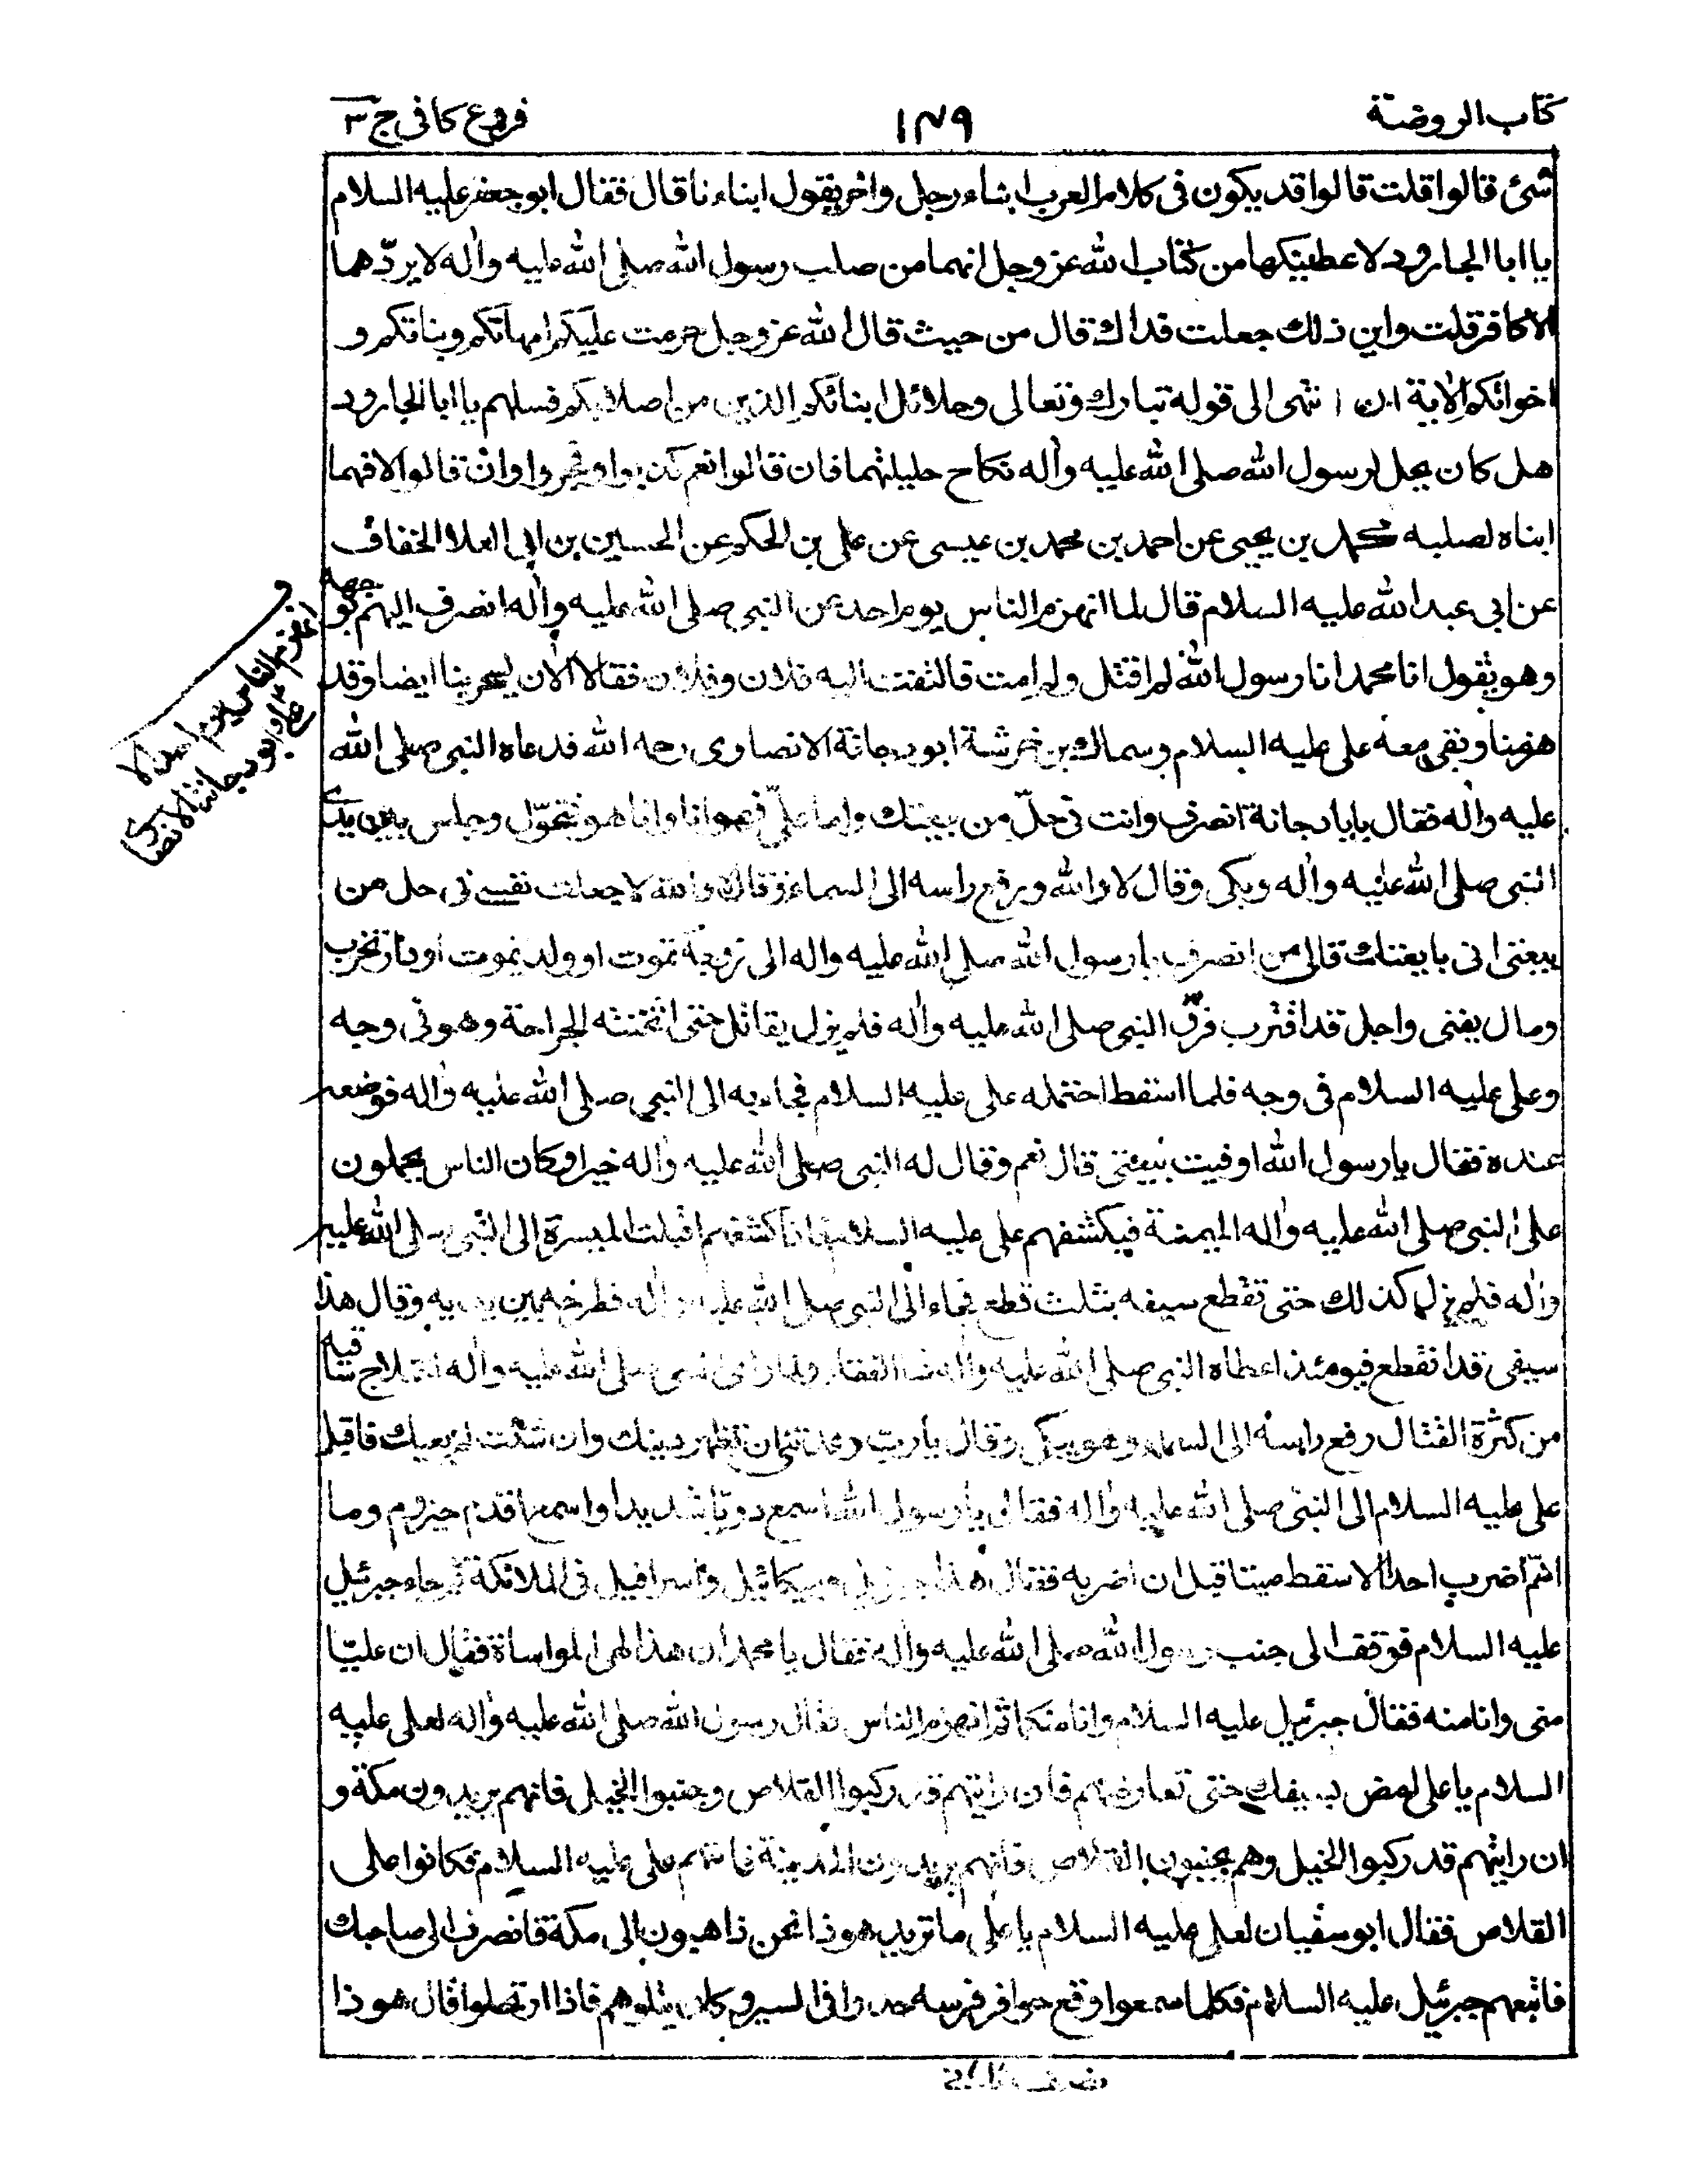 كتاب الروضة
١٤٩
فروع كافى ج ٣
شئ قالوا قلت قالوا قد يكون فى كلام العرب ابناء رجل واخر يقول ابناءنا قال فقال ابو جعفر عليه السلام
يا ابا الجارود لاعطينكها من كتاب الله عز وجل انهما من صلب رسول الله صلى الله عليه واله لا يردّهما
الا كافر قلت واين ذلك جعلت فداك قال من حيث قال الله عز وجل حرمت عليكم امهاتكم وبناتكم و
اخواتكم الاية الى ان انتهى الى قوله تبارك وتعالى وحلائل ابنائكم الذين من اصلابكم فسلهم يا ابا الجارود
هل كان يحل لرسول الله صلى الله عليه واله نكاح حليلتهما فان قالوا نعم كذبوا وفجروا وان قالوا لا فهما
ابناه لصلبه محمد بن يحيى عن احمد بن محمد بن عيسى عن على بن الحكم عن الحسين بن ابى العلا الخفاف
عن ابى عبد الله عليه السلام قال لما انهزم الناس يوم احد عن النبى صلى الله عليه واله انصرف اليهم بوجهه
وهو يقول انا محمد انا رسول الله لم اقتل ولم امت فالتفت اليه فلان وفلان فقالا الان يسخر بنا ايضا وقد
هزمنا وبقى معه على عليه السلام وسماك بن خرشة ابو دجانة الانصارى رحمه الله فدعاه النبى صلى الله
عليه واله فقال يا ابا دجانة انصرف وانت فى حلّ من بيعتك واما علىّ فهو انا وانا هو فتحوّل وجلس بين يدى
النبى صلى الله عليه واله وبكى وقال لا والله ورفع راسه الى السماء وقال لا والله لا جعلت نفسى فى حل من
بيعتى انى بايعتك فالى من انصرف يا رسول الله صلى الله عليه واله الى زوجة تموت او ولد يموت او دار تخرب
ومال يفنى واجل قد اقترب فرقّ النبى صلى الله عليه واله فلم يزل يقاتل حتى اثخنته الجراحة وهو فى وجه
وعلى عليه السلام فى وجه فلما اسقط احتمله على عليه السلام فجاء به الى النبى صلى الله عليه واله فوضعه
عنده فقال يا رسول الله اوفيت ببيعتى قال نعم وقال له النبى صلى الله عليه واله خيرا وكان الناس يحملون
على النبى صلى الله عليه واله الميمنة فيكشفهم على عليه السلام فاذا كشفهم اقبلت الميسرة الى النبى صلى الله عليه
واله فلم يزل كذلك حتى تقطع سيفه بثلث قطع فجاء الى النبى صلى الله عليه واله فطرحه بين يديه وقال هذا
سيفى قد انقطع فيومئذ اعطاه النبى صلى الله عليه واله ذا الفقار ولما راى النبى صلى الله عليه واله اختلاج ساقيه
من كثرة القتال رفع راسه الى السماء وهو يبكى وقال يا ربّ وعدتنى ان تظهر دينك وان شئت لم يعيك فاقبل
على عليه السلام الى النبى صلى الله عليه واله فقال يا رسول الله اسمع دويّا شديدا واسمع اقدم حيزوم وما
اهمّ اضرب احدا الا سقط ميتا قبل ان اضربه فقال هذا جبرئيل وميكائيل واسرافيل فى الملائكة ثم جاء جبرئيل
عليه السلام فوقف الى جنب رسول الله صلى الله عليه واله فقال يا محمد ان هذا لهى المواساة فقال ان عليّا
منى وانا منه فقال جبرئيل عليه السلام وانا منكما ثم انهزم الناس فقال رسول الله صلى الله عليه واله لعلى عليه
السلام يا على امض بسيفك حتى تعارضهم فان رايتهم قد ركبوا القلاص وجنبوا الخيل فانهم يريدون مكة و
ان رايتهم قد ركبوا الخيل وهم يجنبون القلاص فانهم يريدون المدينة فاتاهم على عليه السلام فكانوا على
القلاص فقال ابو سفيان لعلى عليه السلام يا على ما تريد هو ذا نحن ذاهبون الى مكة فانصرف الى صاحبك
فاتبعهم جبرئيل عليه السلام فكلما سمعوا وقع حوافر فرسه جدوا فى السير وكان يتلوهم فاذا ارتحلوا قال هو ذا